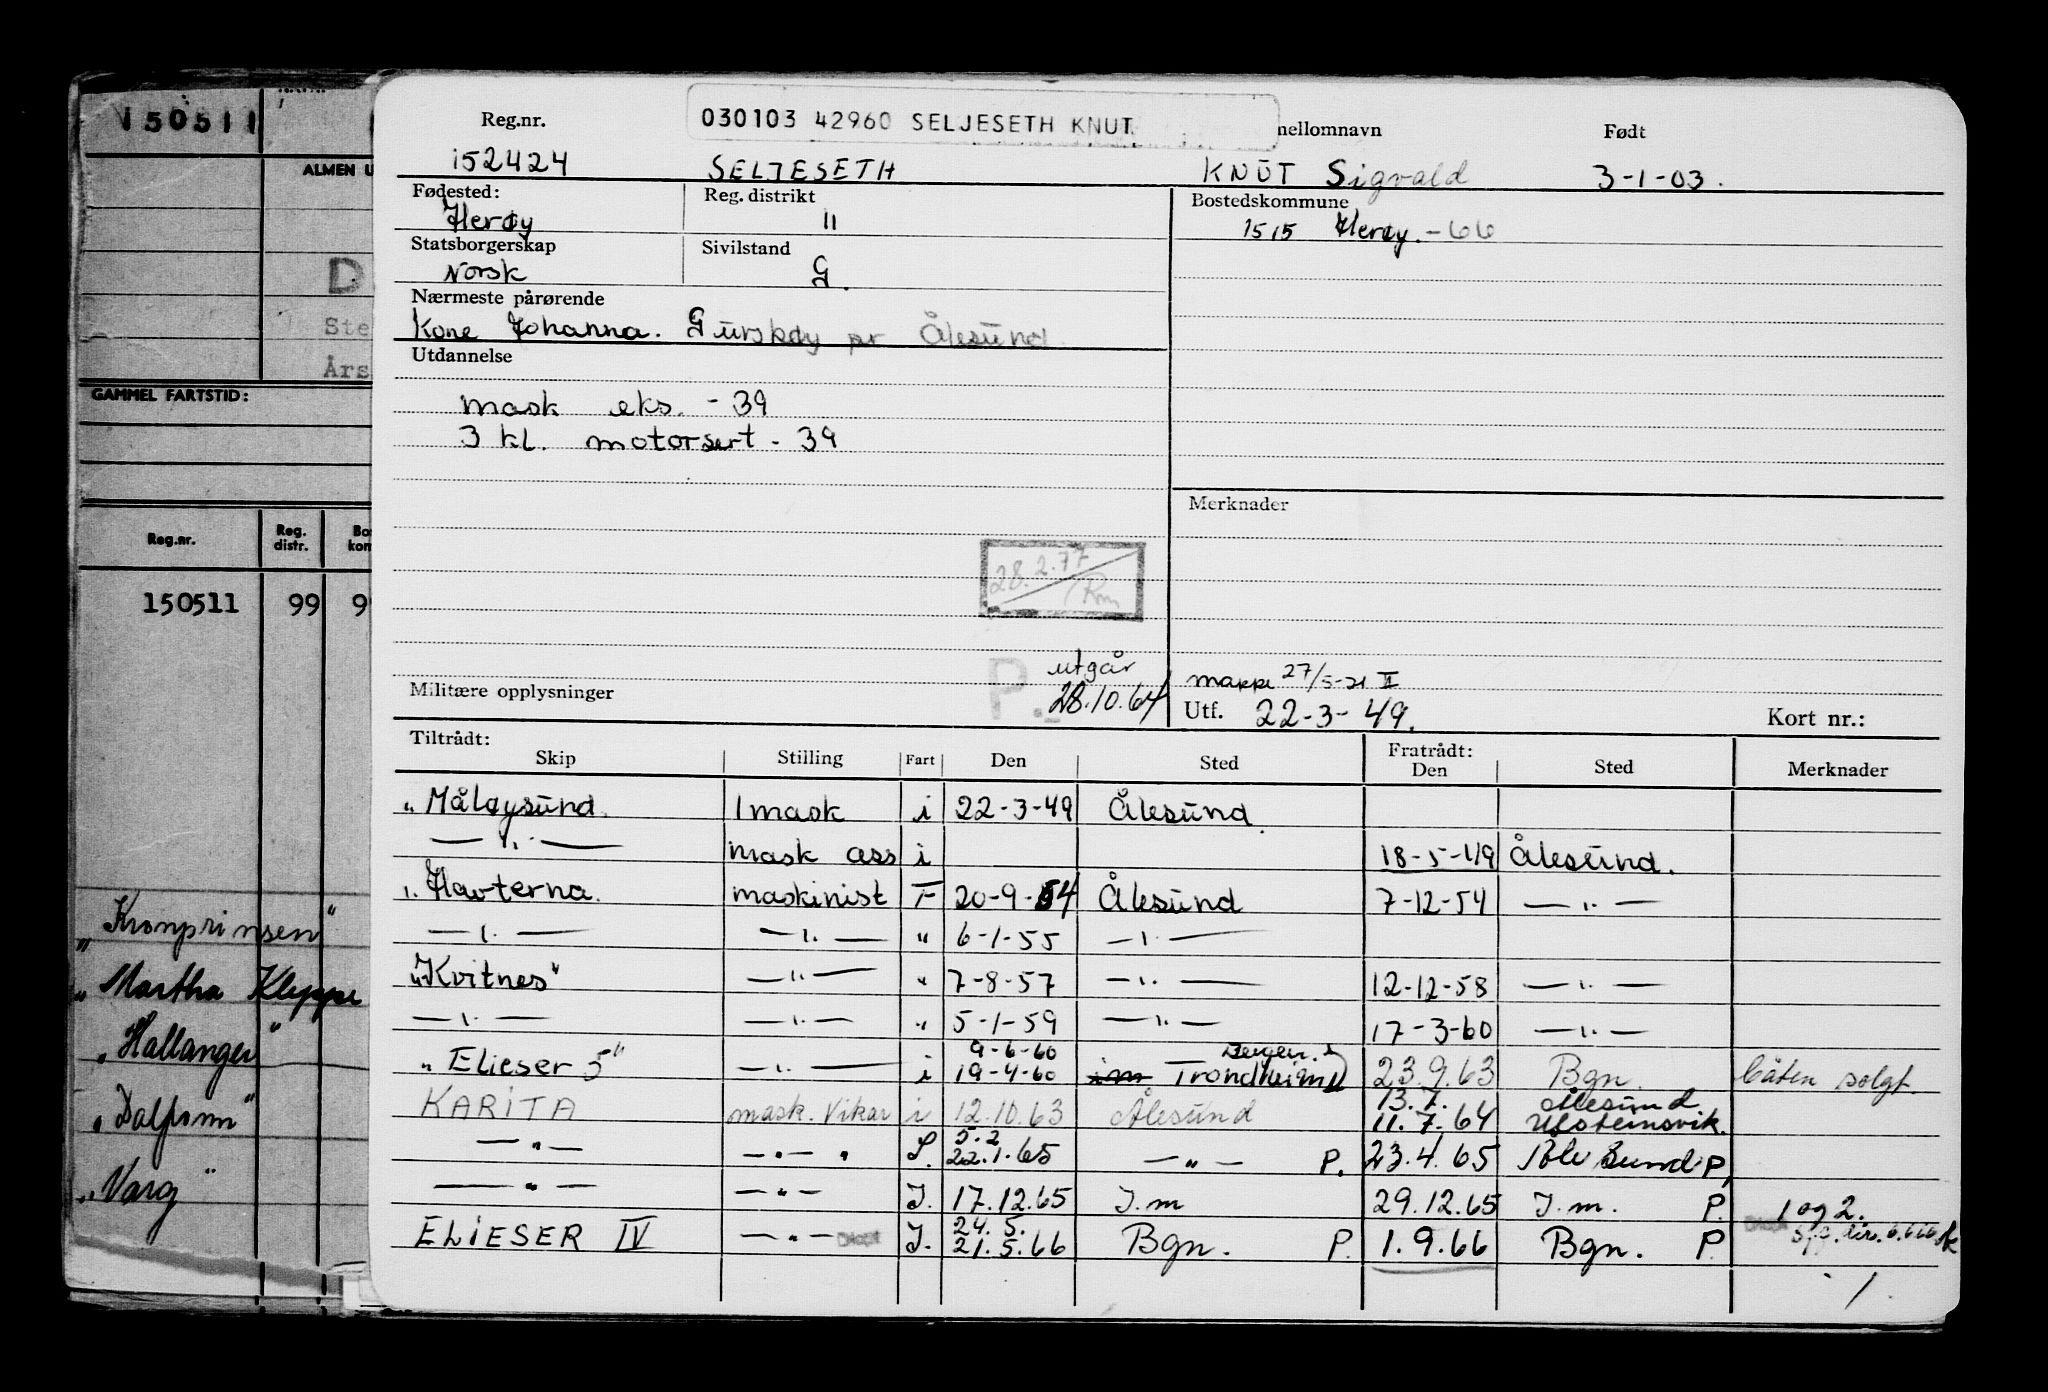 150511
ALMEN U
D
Ste
Års
GAMMEL FARTSTID:
Reg.nr. Reg. distr. Bo kom
150511 99 9
„Kronprinsen"
„Martha Kleppe
„Hallanger"
„Varg"
Reg.nr. 030103 42960 SELJESETH KNUT mellomnavn Født
152424 SELJESETH KNUT Sigvald 3-1-03.
Fødested: Reg. distrikt Bostedskommune
Herøy 11 1515 Herøy. -66
Statsborgerskap Sivilstand
Norsk G.
Nærmeste pårørende
Kone Johanna. Gurskøy pr Ålesund
Utdannelse
mask eks. - 39
3 kl. motorsert - 39
Merknader
28.2.77
utgår
P. 28.10.64
Militære opplysninger
mappe 27/5-21 II
Utf. 22-3-49. Kort nr.:
Tiltrådt: Fratrådt:
Skip Stilling Fart Den Sted Den Sted Merknader
„Måløysund. 1 mask i 22-3-49 Ålesund.
— „ — mask ass i 18-5-49 Ålesund.
„Havterna. maskinist F 20-9-54 Ålesund 7-12-54 — „ —
— „ — — „ — " 6-1-55 — „ —
„Kvitnes" — „ — " 7-8-57 — „ — 12-12-58 — „ —
— „ — — „ — " 5-1-59 — „ — 17-3-60 — „ —
9-6-60 Bergen.
„Elieser 5" — „ — i 19-4-60 Trondheim 23.9.63 Bgn. båten solgt.
13.7. Ålesund
KARITA mask. Vikar i 12.10.63 Ålesund 11.7.64 Ulsteinsvik.
5.2
— „ — — „ — „ S. 22.1.65 — „ — P. 23.4.65 Sund P.
— „ — — „ — I. 17.12.65 I.m 29.12.65 I.m. P. 1 og 2.
24.5.
ELIESER IV — „ — I. 21.5.66 Bgn. P. 1.9.66 Bgn. P.
1